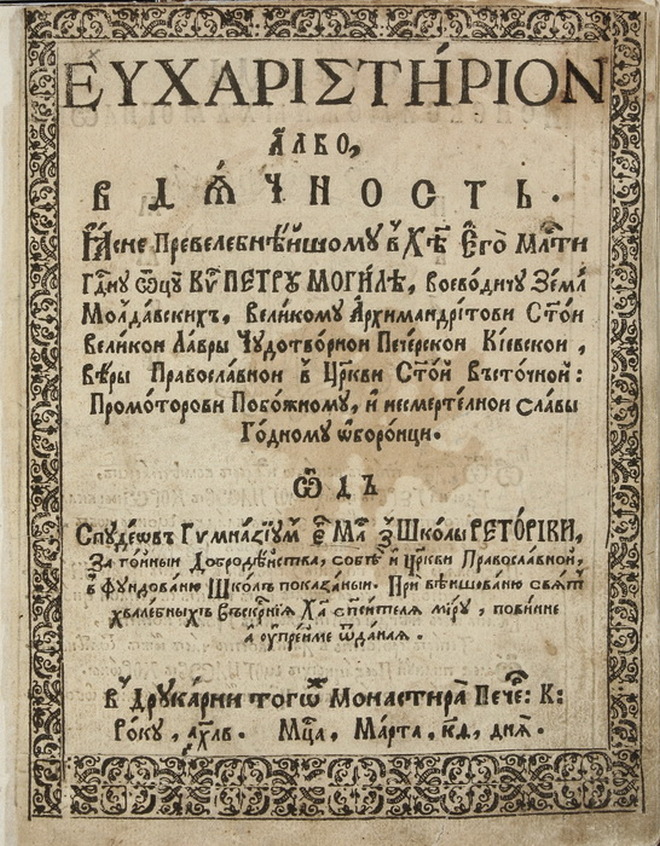 ЕУХАРІΣТИ́РІОN
А́ЛБО,
ВДѦ́ЧНОСТЬ.
Ꙗ҆́сне Превелебнѣ́йшому в̾ Хѣ҃ Є҆го̀ Мл҃ти
Гд҃ну Ѿцꙋ҃ Кѵ҃ ПЕТРꙊ МОГИ́ЛѢ, Воево́дичу Земл̾
Молда́вскихъ, Вели́кому А҆рхимандрі́тови Ст҃ои
Вели́кои Ла́вры Чудотво́рнои Пече́рскои Кі́евскои,
Вѣ́ры Правосла́внои в̾ Цр҃кви Ст҃ой Въсто́чной:
Промо́торови Побо́жному, и҆ несмерте́лнои сла́вы
Го́дному ѡ҆боро́нци.
Ѿ ДЪ
Спуде́ѡвъ Гѵмна́зїум̾ Є҃ М҃л з̾ Шко́лы РЕТО́РІКИ,
За го́йныи Добродѣ́йства, собѣ̀ и҆ Цр҃кви Правосла́вной,
в̾ фундова́ню Шко́лъ пока́заныи. При вѣ́ншова́ню свѧ́т̾
хвале́бныхъ Въскр҃нїѧ Ха҃ сп҃и́телѧ мі́ру, пови́нне
а҆ ѹ҆пре́йме ѿда́наѧ.
в̾ Друка́рни того́ж̾ Монастирѧ̀ Пече: К:
Ро́ку, ҂ахлв. Мц҃а, Ма́рта, к҃д, днѧ̀.